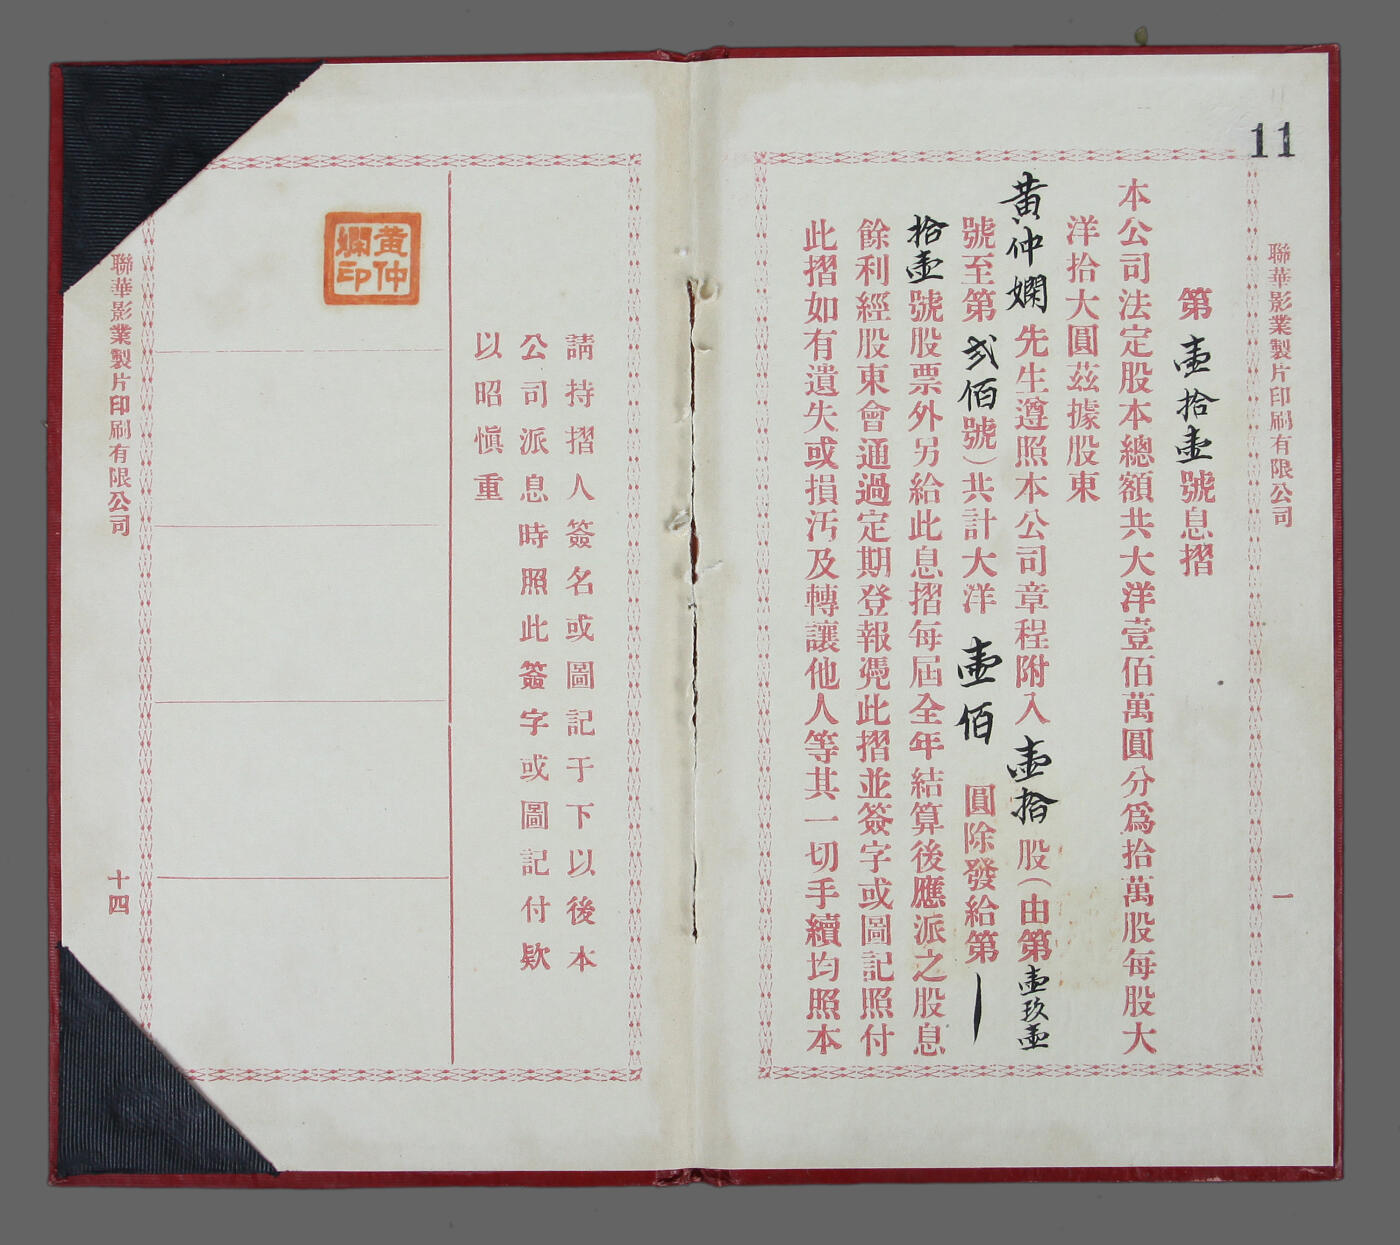 11
聯華影業製片印刷有限公司
一
第壹拾壹號息摺
本公司法定股本總額共大洋壹佰萬圓分爲拾萬股每股大
洋拾大圓茲據股東
黃仲嫻先生遵照本公司章程附入壹拾股(由第壹玖壹
號至第弍佰號)共計大洋壹佰圓除發給第一
拾壹號股票外另給此息摺每屆全年結算後應派之股息
餘利經股東會通過定期登報憑此摺並簽字或圖記照付
此摺如有遺失或損汚及轉讓他人等其一切手續均照本
請持摺人簽名或圖記于下以後本
公司派息時照此簽字或圖記付欵
以昭愼重
黃仲嫻印
聯華影業製片印刷有限公司
十四